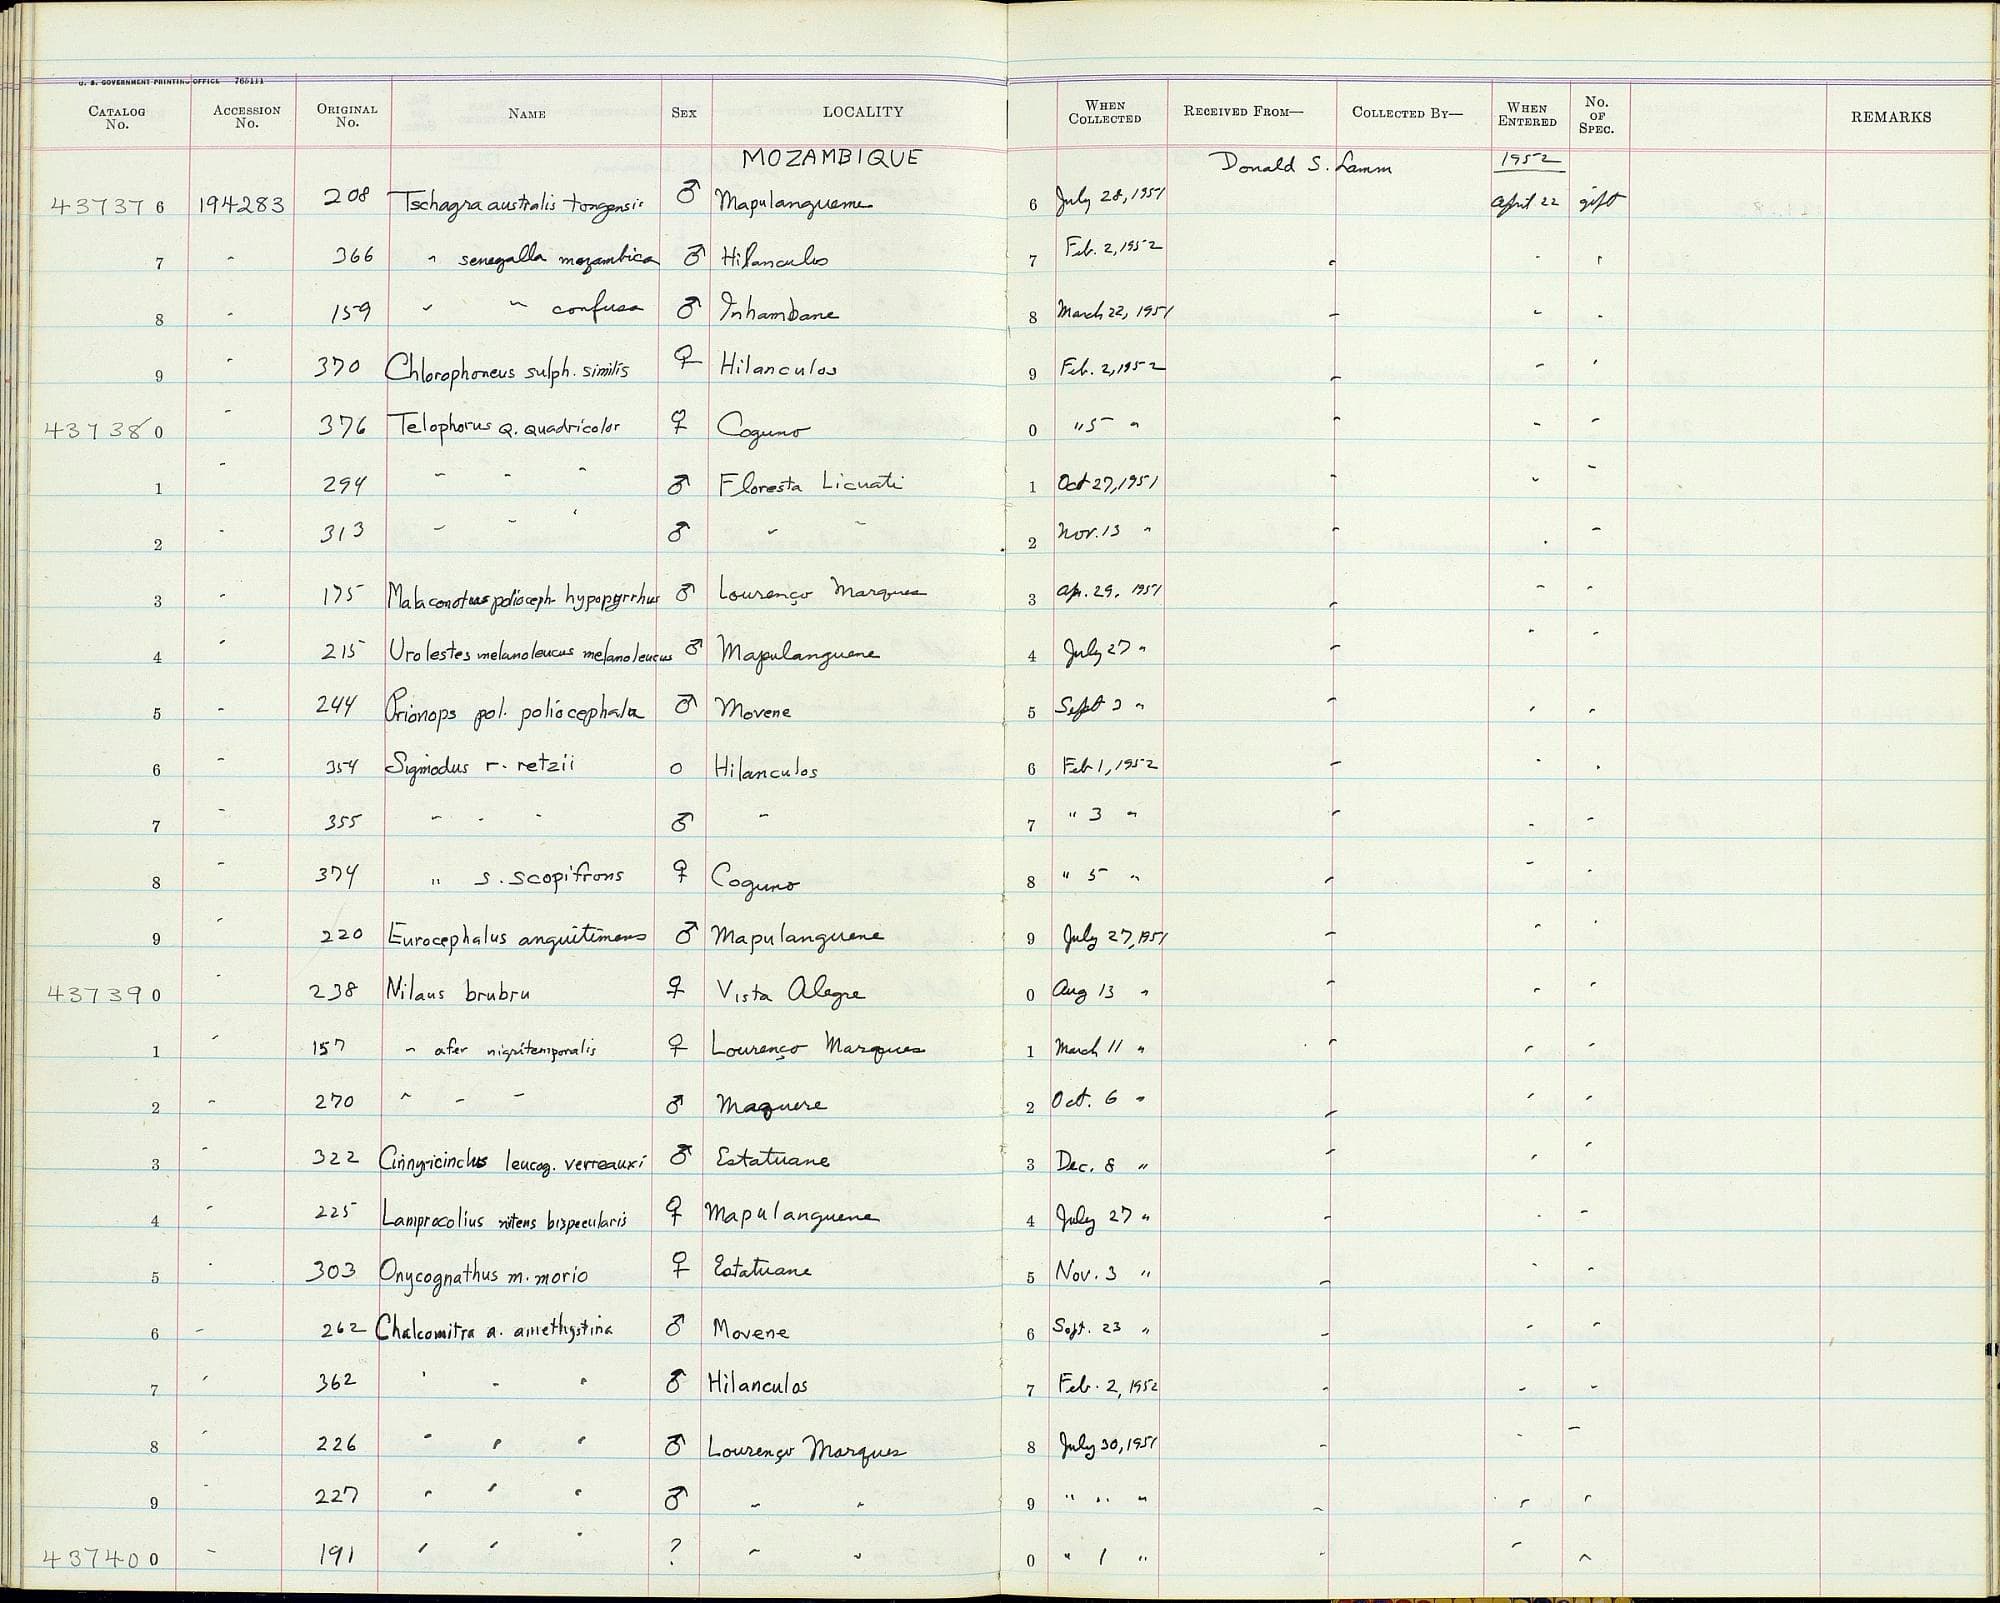 U. S. GOVERNMENT PRINTING OFFICE 765111
CATALOG No. ACCESSION No. ORIGINAL No. NAME SEX LOCALITY WHEN COLLECTED RECEIVED FROM— COLLECTED BY— WHEN ENTERED No. OF SPEC. REMARKS
MOZAMBIQUE Donald S. Lamm 1952
437376 194283 208 Tschagra australis tongensis ♂ Mapulangueme 6 July 28, 1951 April 22 gift
7 " 366 " senegalla mozambica ♂ Hilanculos 7 Feb. 2, 1952 " " "
8 " 159 " " confusa ♂ Inhambane 8 March 22, 1951 " " "
9 " 370 Chlorophoneus sulph. similis ♀ Hilanculos 9 Feb. 2, 1952 " " "
437380 " 376 Telophorus q. quadricolor ♀ Coguno 0 " 5 " " " "
1 " 294 " " " ♂ Floresta Licuati 1 Oct 27, 1951 " " "
2 " 313 " " " ♂ " " 2 Nov. 13 " " " "
3 " 175 Malaconotus polioceph. hypopyrrhus ♂ Lourenço Marques 3 Ap. 29, 1951 " " "
4 " 215 Urolestes melanoleucus melanoleucus ♂ Mapulanguene 4 July 27 " " " "
5 " 244 Prionops pol. poliocephala ♂ Movene 5 Sept 3 " " " "
6 " 354 Sigmodus r. retzii o Hilanculos 6 Feb 1, 1952 " " "
7 " 355 " " " ♂ " 7 " 3 " " " "
8 " 374 " s. scopifrons ♀ Coguno 8 " 5 " " " "
9 " 220 Eurocephalus anguitimens ♂ Mapulanguene 9 July 27, 1951 " " "
437390 " 238 Nilaus brubru ♀ Vista Alegre 0 Aug 13 " " " "
1 " 157 " afer nigritemporalis ♀ Lourenço Marques 1 March 11 " " " "
2 " 270 " " " ♂ Maquere 2 Oct. 6 " " " "
3 " 322 Cinnyricinclus leucog. verreauxi ♂ Estatuane 3 Dec. 8 " " " "
4 " 225 Lamprocolius nitens bispecularis ♀ Mapulanguene 4 July 27 " " " "
5 " 303 Onycognathus m. morio ♀ Estatuane 5 Nov. 3 " " " "
6 " 262 Chalcomitra a. amethystina ♂ Movene 6 Sept. 23 " " " "
7 " 362 " " " ♂ Hilanculos 7 Feb. 2, 1952 " " "
8 " 226 " " " ♂ Lourenço Marques 8 July 30, 1951 " " "
9 " 227 " " " ♂ " " 9 " " " " " "
437400 " 191 " " " ? " " 0 " 1 " " " "